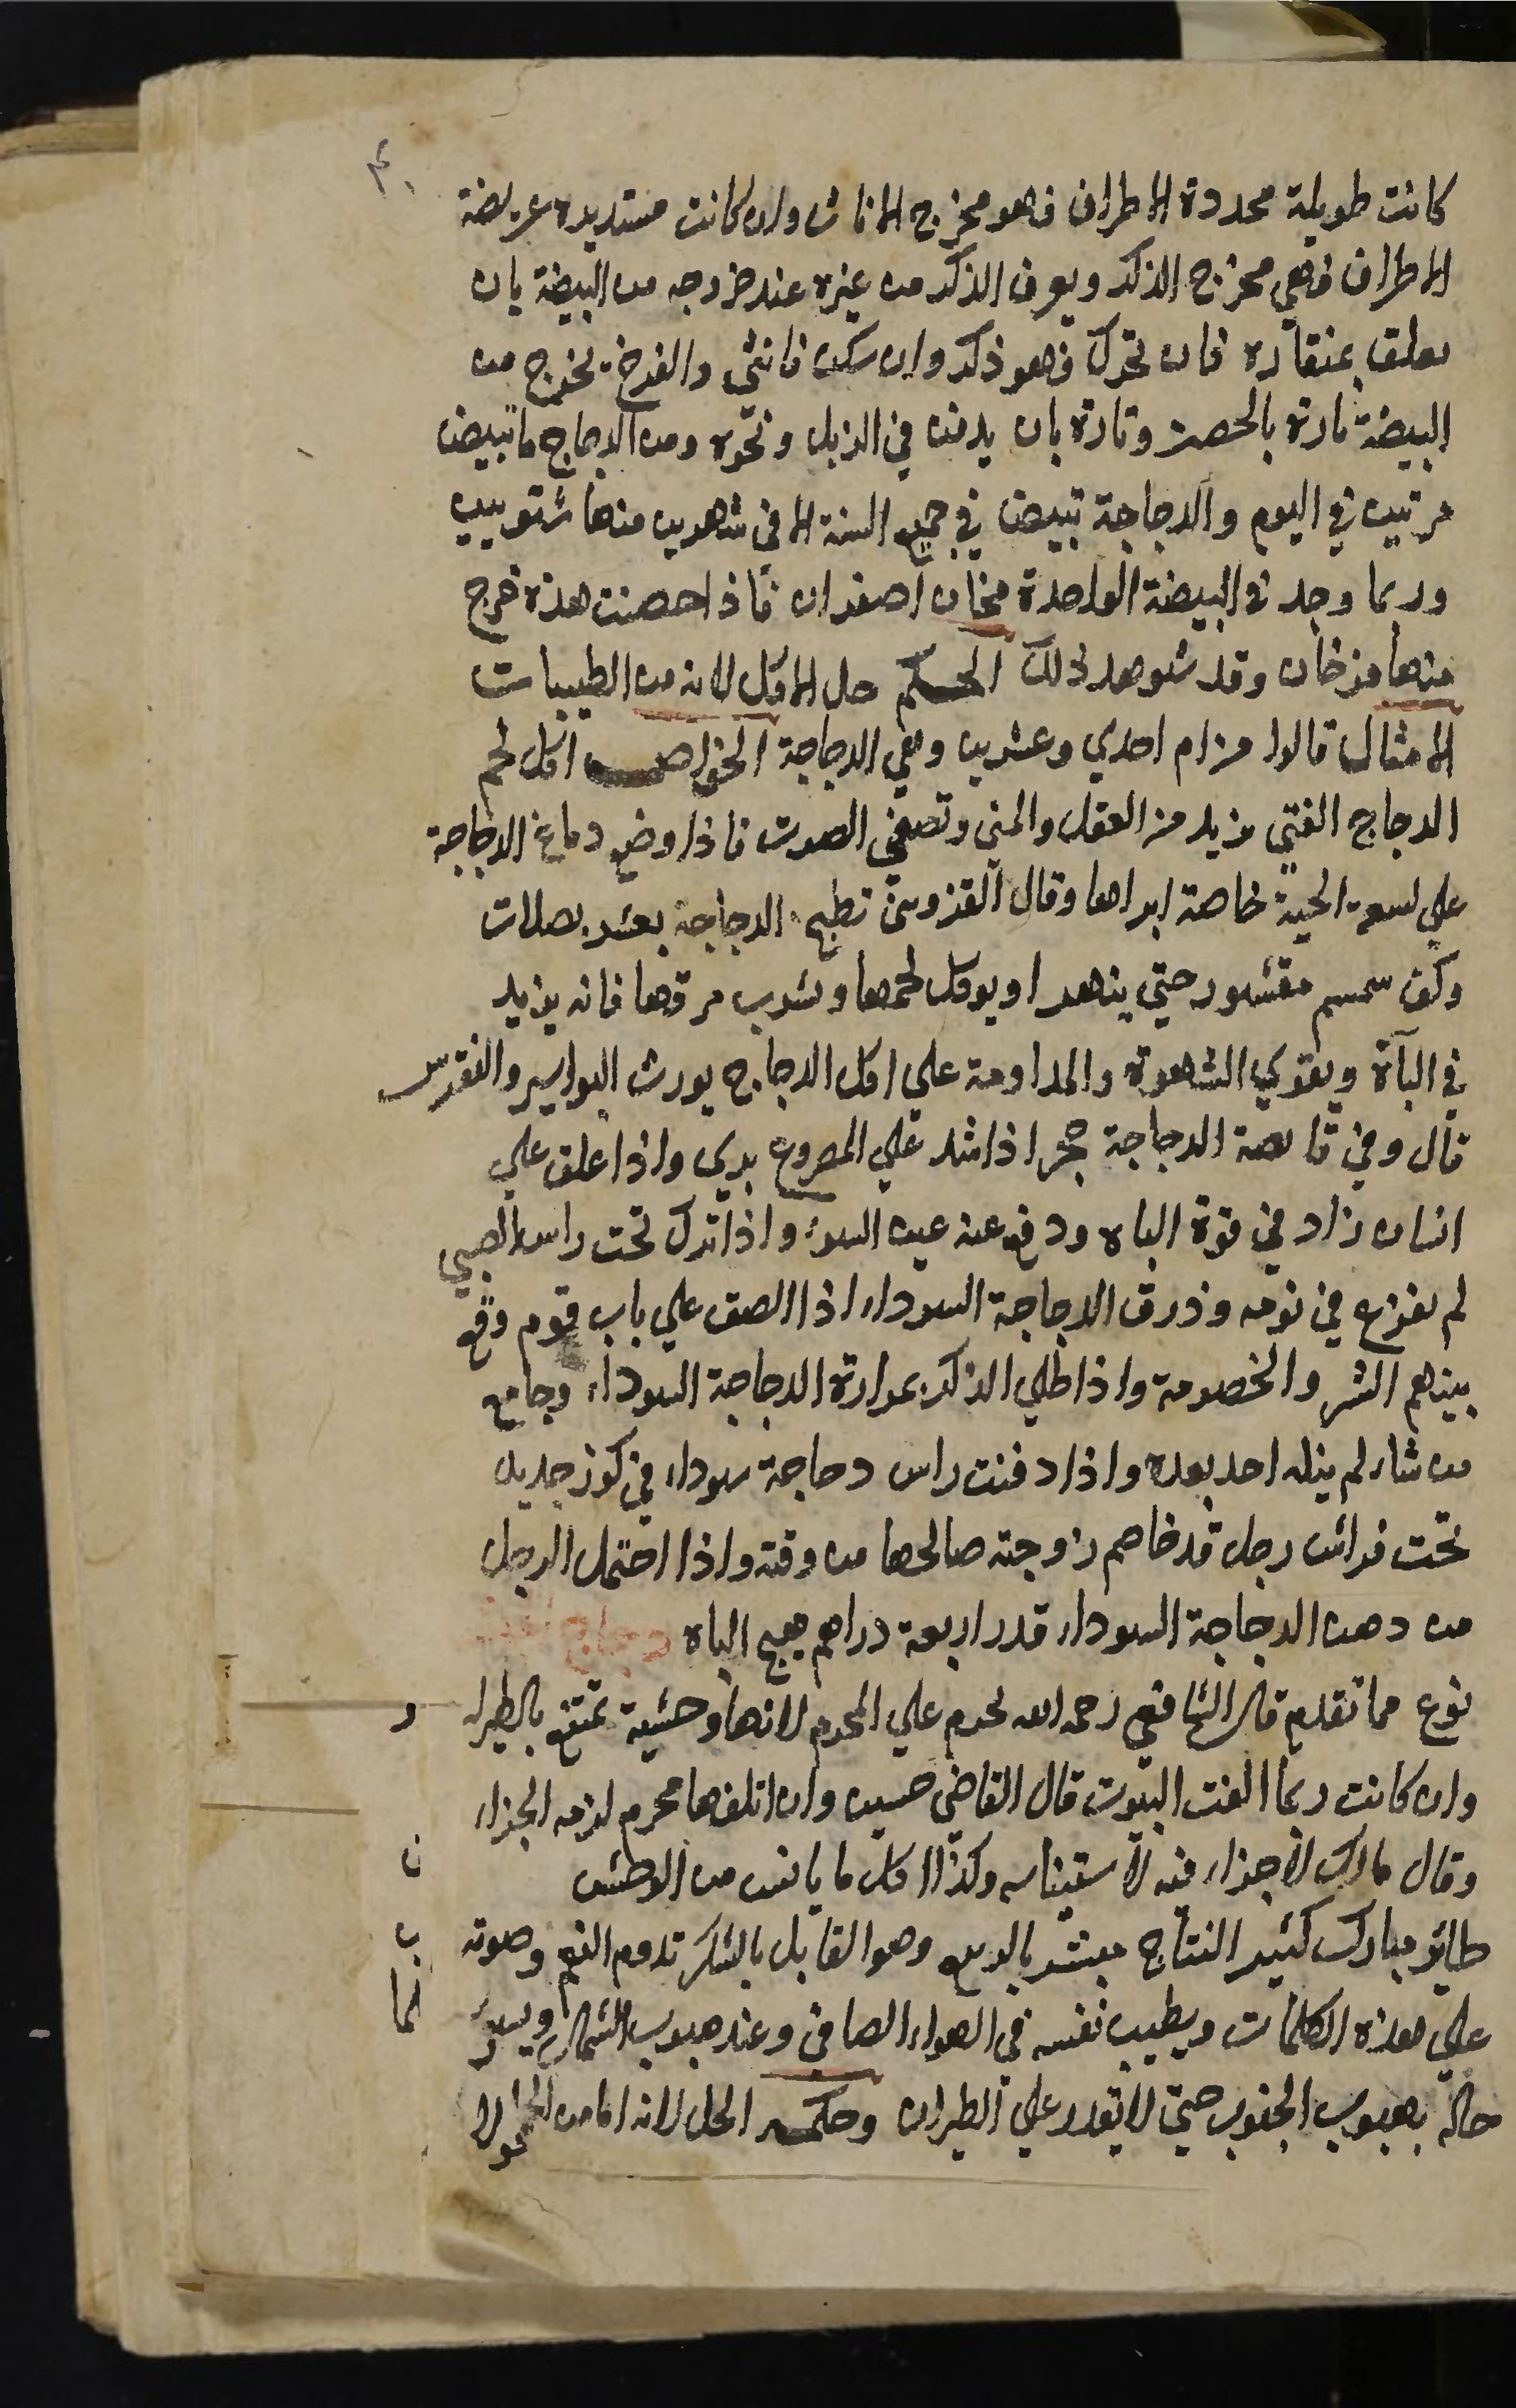 كانت طويلة محددة الاطراف فهو مخرج الاناث وان كانت مستديرة عريضة
الاطراف فهي مخرج الذكر ويعرف الذكر من غيره عند خروجه من البيضة بان
يعلق بمنقاره فان تحرك فهو ذكر وان سكن فانثى والفرخ يخرج من
البيضة تارة بالحضن وتارة بان يدفن في الزبل ونحوه ومن الدجاج ما تبيض
مرتين في اليوم والدجاجة تبيض في جميع السنة الا في شهرين منها شتويين
وربما وجد في البيضة الواحدة مخان اصفران فاذا حضنت هذه خرج
منها فرخان وقد شوهد ذلك الحكم حل الاكل لانه من الطيبات
الامثال قالوا من ام احدي وعشرين وهي الدجاجة الخواص اكل لحم
الدجاج الفتي يزيد من العقل والمني وتصفي الصوت فاذا وضع دماغ الدجاجة
علي لسعة الحية خاصة ابراها وقال القزويني تطبخ الدجاجة بعشر بصلات
وكف سمسم مقشور حتي ينهرا ويوكل لحمها ويشرب مرقها فانه يزيد
في الباة ويقوي الشهوة والمداومة علي اكل الدجاج يورث البواسير والنقرس
قال وفي قانصة الدجاجة حجرا اذا شد علي المصروع بري واذا علق علي
انسان زاد في قوة الباه ودفع عنه عين السوء واذا ترك تحت راس الصبي
لم يفزع في نومه وذرق الدجاجة السوداء اذا الصق علي باب قوم وقع
بينهم الشر والخصومة واذا طلي الذكر بمرارة الدجاجة السوداء وجامع
من شاء لم ينله احد بعده واذا دفنت راس دجاجة سوداء في كوز جديد
تحت فراش رجل قد خاصم زوجته صالحها من وقته واذا احتمل الرجل
من دهن الدجاجة السوداء قدر اربعة دراهم هيج الباه دجاج
نوع مما تقدم قال الشافعي رحمه الله يحرم علي المحرم لانها وحشية تمتنع بالطيرا
وان كانت ربما الفت البيوت قال القاضي حسين وان اتلفها محرم لزمه الجزاء
وقال مالك لا جزاء فيه لاستيناسه وكذا كل ما يانس من الوحش
طائر مبارك كثير النتاج مبشر بالربيع وهو القائل بالشكر تدوم النعم وصوته
علي هذه الكلمات ويطيب نفسه في الهواء الصافي وعند هبوب الشمال ويسوء
حاله بهبوب الجنوب حتي لا يقدر علي الطيران وحكمه الحل لانه اما من